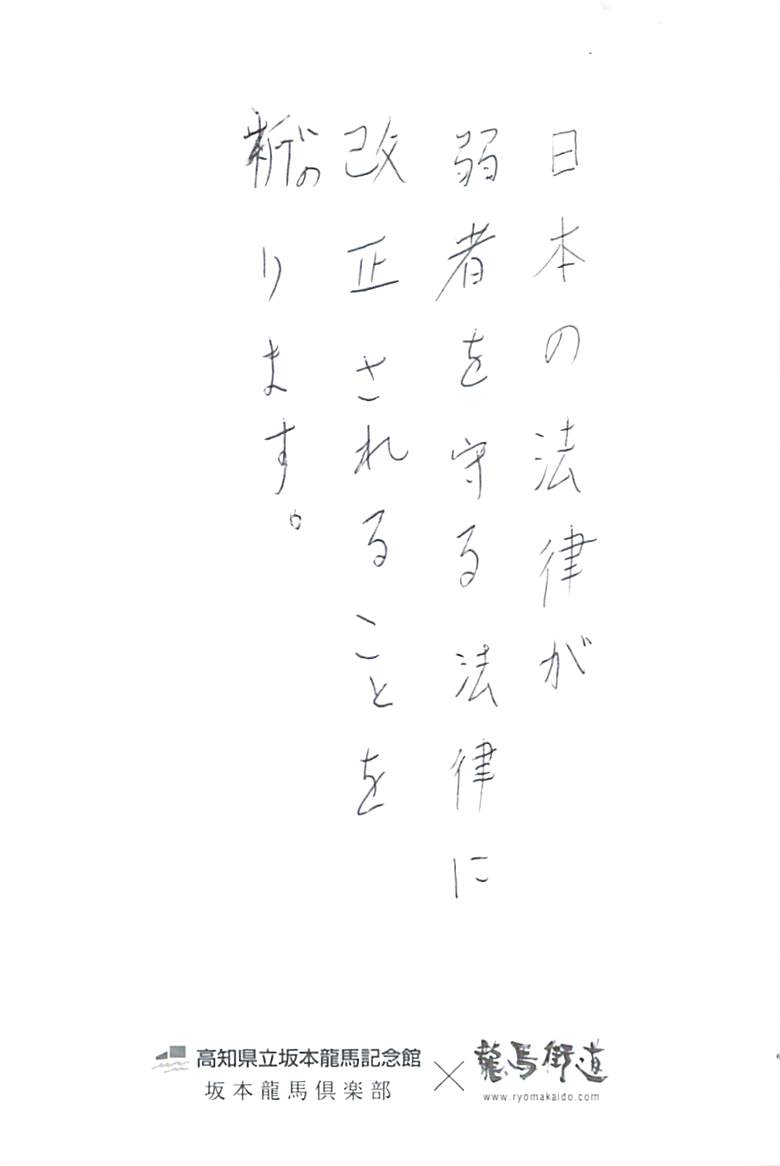 日本の法律が
弱者を守る法律に
改正されることを
祈ります。
いの
高知県立坂本龍馬記念館
坂本龍馬倶楽部
×
龍馬街道
www.ryomakaido.com